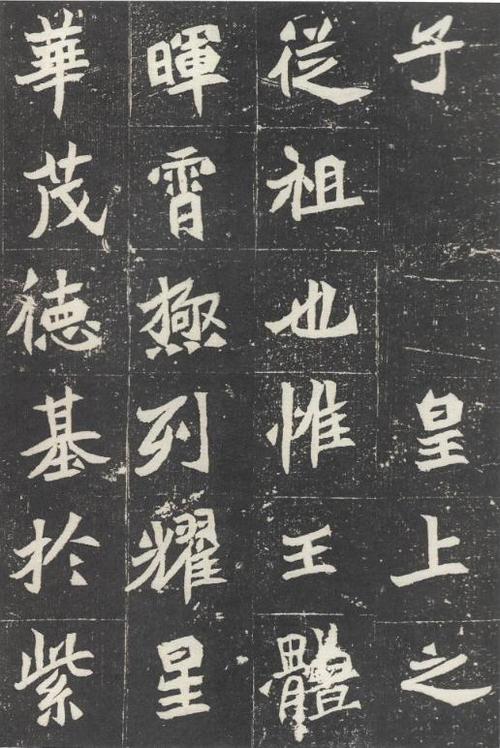 子 皇上之
從祖也惟王體
暉霄極列耀星
華茂德基於紫